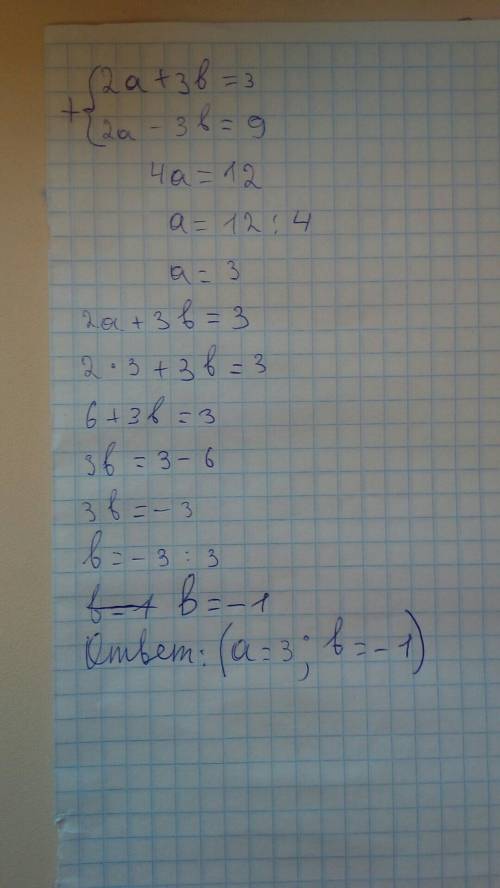 +{2a + 3b = 3
2a - 3b = 9
4a = 12
a = 12 : 4
a = 3
2a + 3b = 3
2 · 3 + 3b = 3
6 + 3b = 3
3b = 3 - 6
3b = - 3
b = - 3 : 3
b = 1 b = - 1
Ответ: (a = 3; b = - 1)